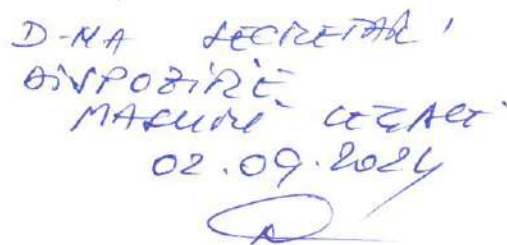 D-NA SECRETAR
DISPOZIȚIE
MĂSURI LEGALE
02.09.2024